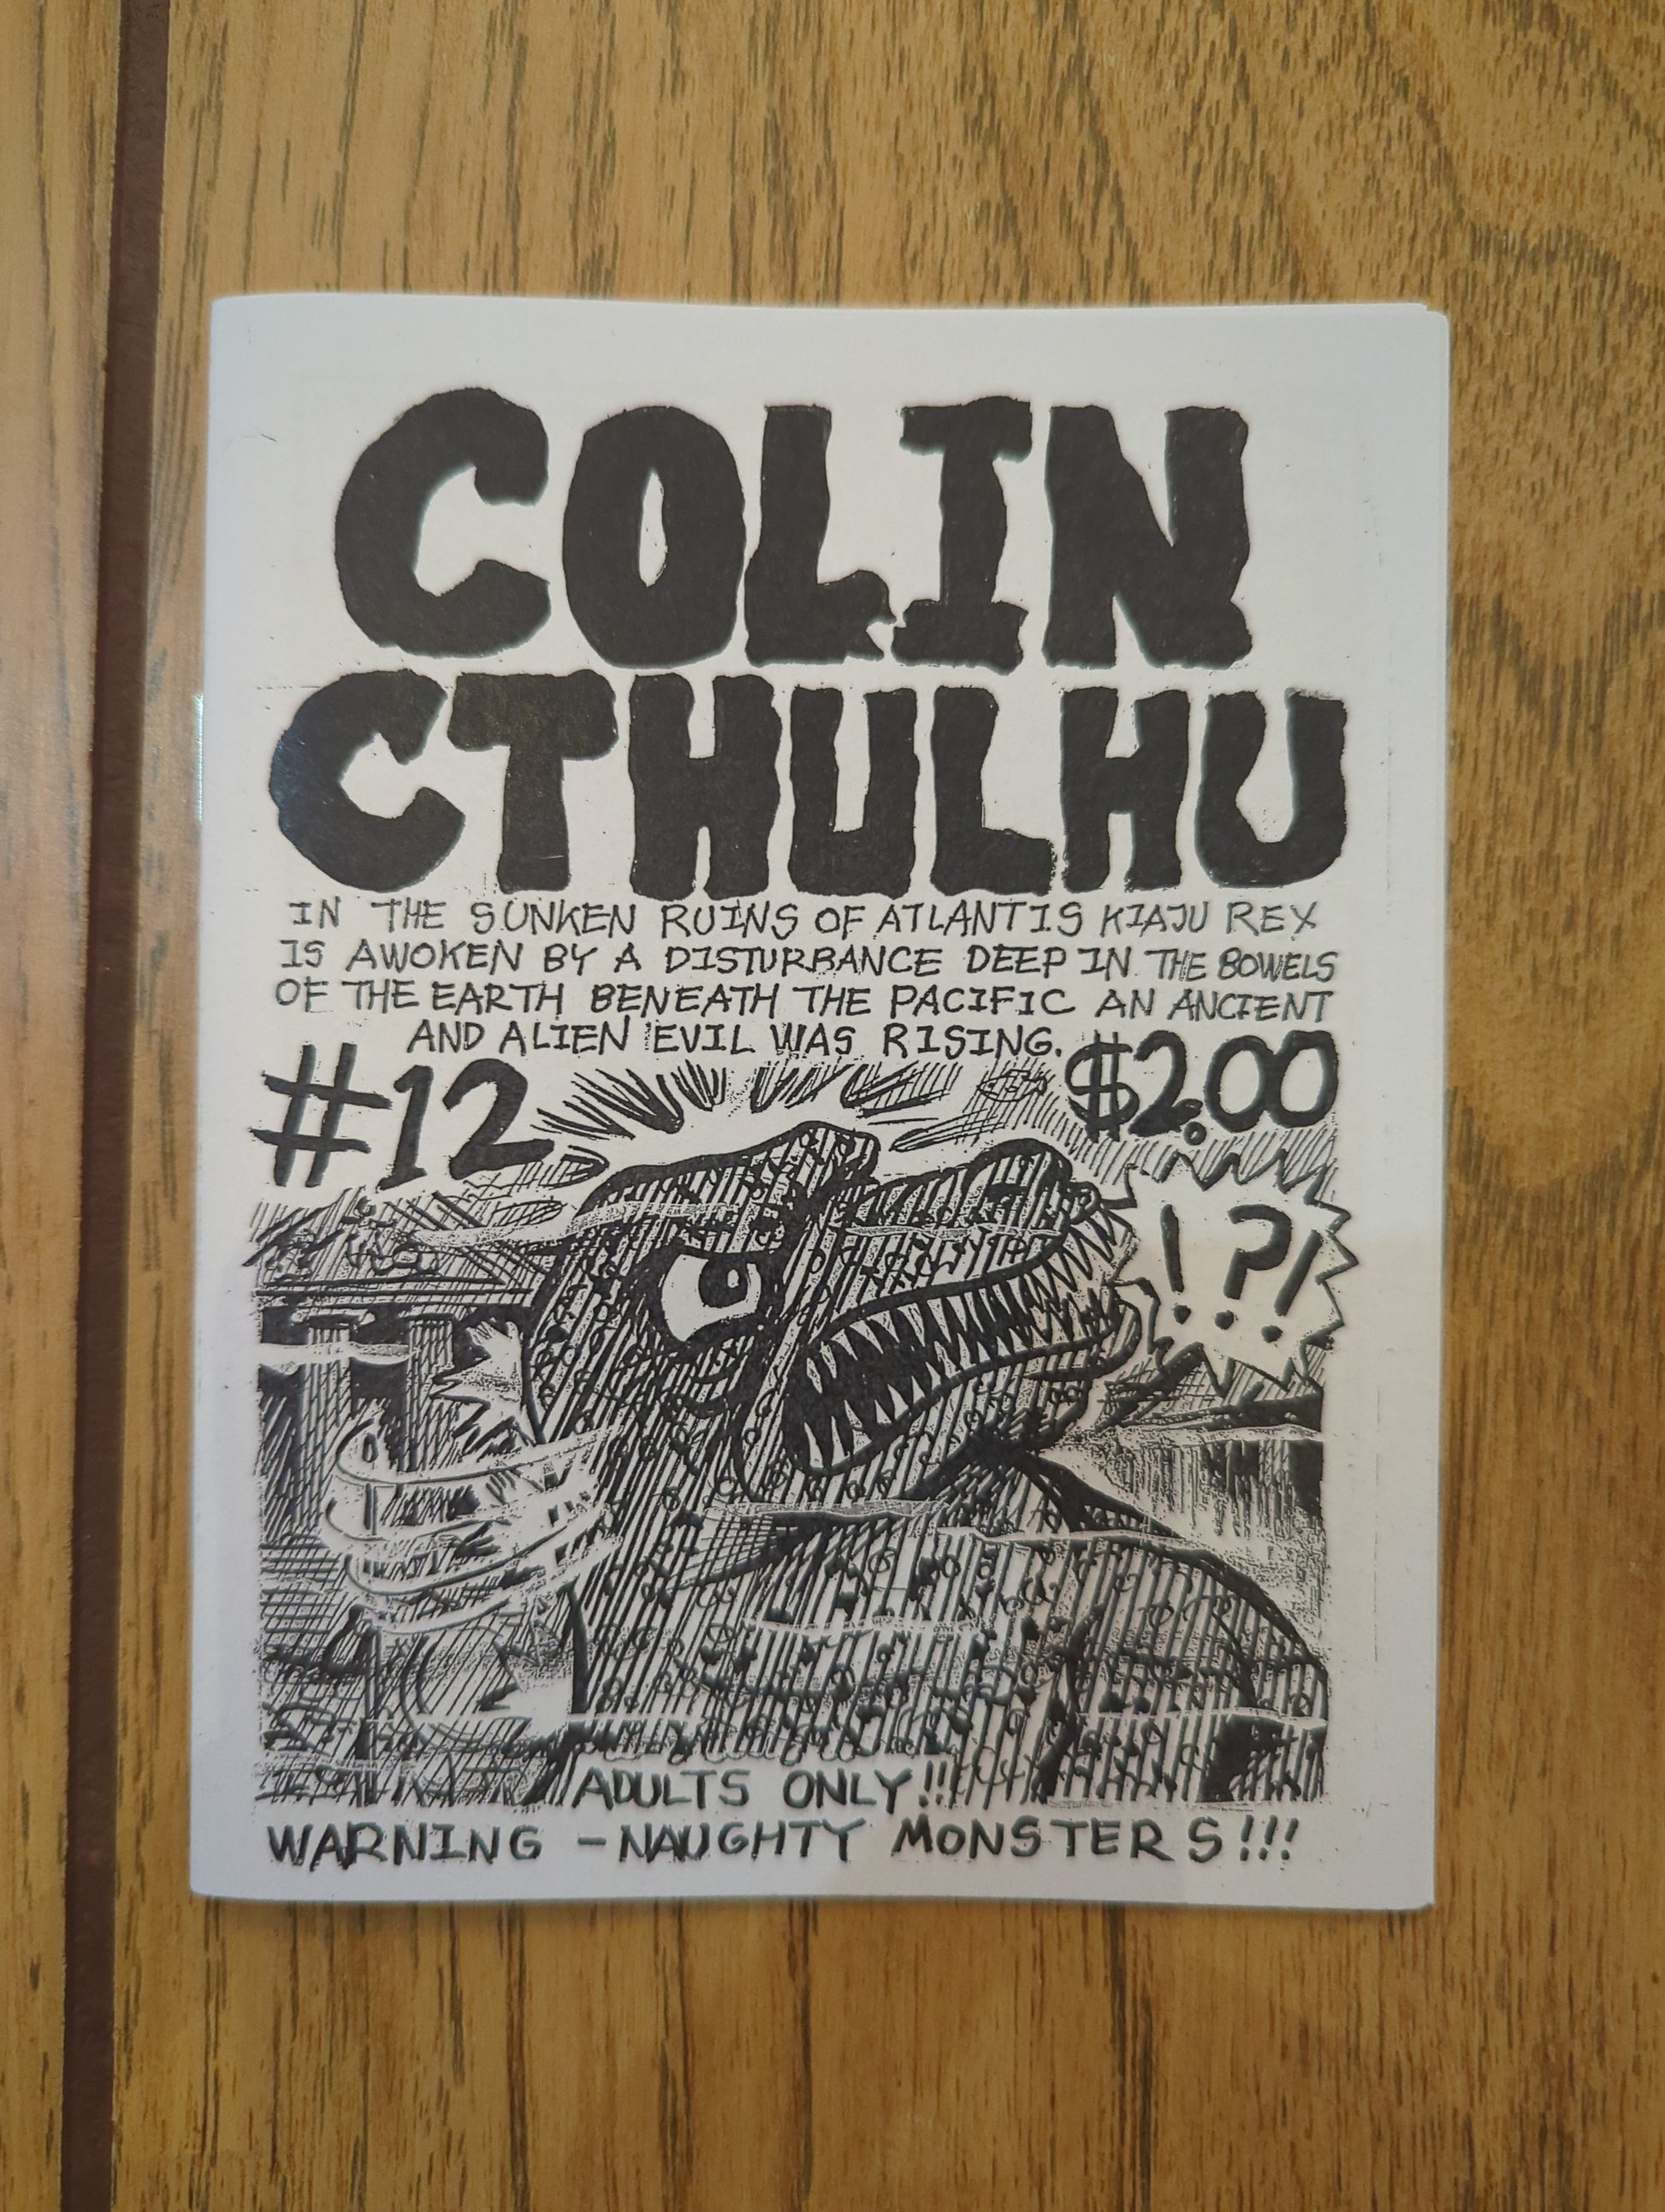 COLIN
CTHULHU
IN THE SUNKEN RUINS OF ATLANTIS KIAJU REX
IS AWOKEN BY A DISTURBANCE DEEP IN THE BOWELS
OF THE EARTH BENEATH THE PACIFIC AN ANCIENT
AND ALIEN EVIL WAS RISING.
#12
$2.00
!?!
ADULTS ONLY!!!
WARNING - NAUGHTY MONSTERS!!!